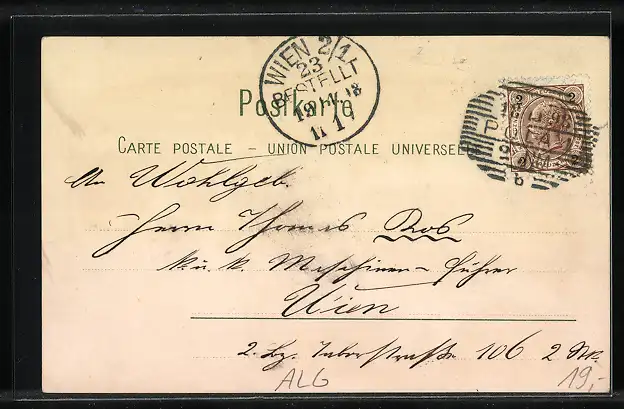 WIEN 2/1
23
BESTELLT
Postkarte
CARTE POSTALE – UNION POSTALE UNIVERSELLE
An Wohlgeb.
Herrn Thomas Ros
k. u. k. Maschinen-Führer
Wien
2. Bz. Taborstraße 106 2 Stk.
ALG
19,-